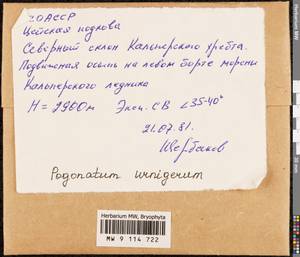 ЮОАССР
Цейская подкова
Северный склон Кальперского хребта.
Подвижная осыпь на левом борте морены
Кальперского ледника
H = 2900м Эксп. СВ ∠35-40°
21.07.81.
Щербаков
Pogonatum urnigerum
Herbarium MW, Bryophyta
MW 9 114 722